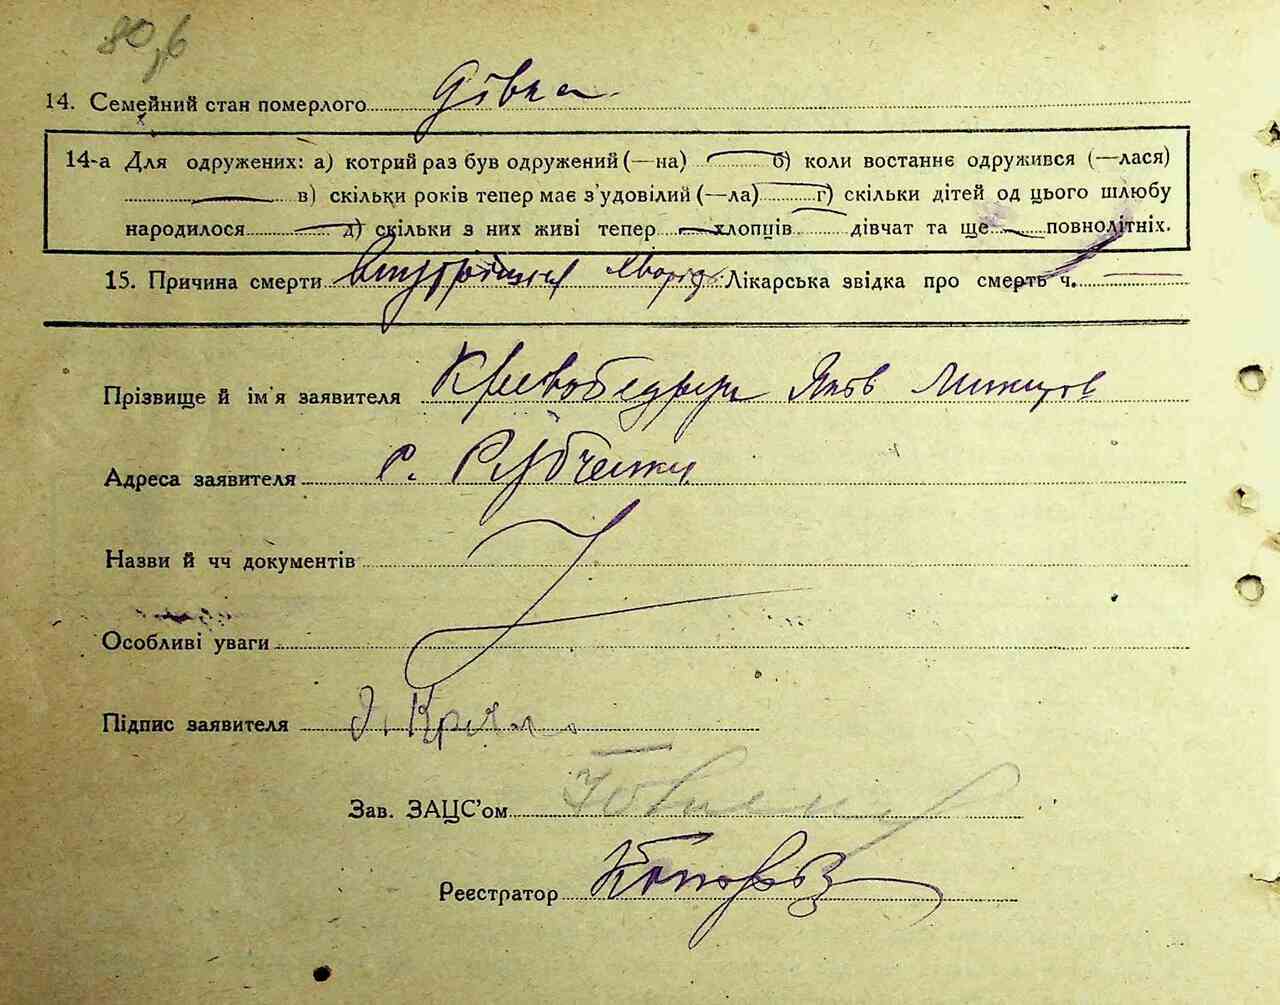 80, б
14. Семейний стан померлого дівка
14-а Для одружених: а) котрий раз був одружений (—на) б) коли востаннє одружився (—лася)
в) скільки років тепер має з'удовілий (—ла) г) скільки дітей од цього шлюбу
народилося д) скільки з них живі тепер хлопців дівчат та ще повнолітніх.
15. Причина смерти внутрішня Лікарська звідка про смерть ч.
Прізвище й ім'я заявителя Яков
Адреса заявителя с. Рубченки
Назви й чч документів
Особливі уваги
Підпис заявителя
Зав. ЗАЦС'ом
Реєстратор